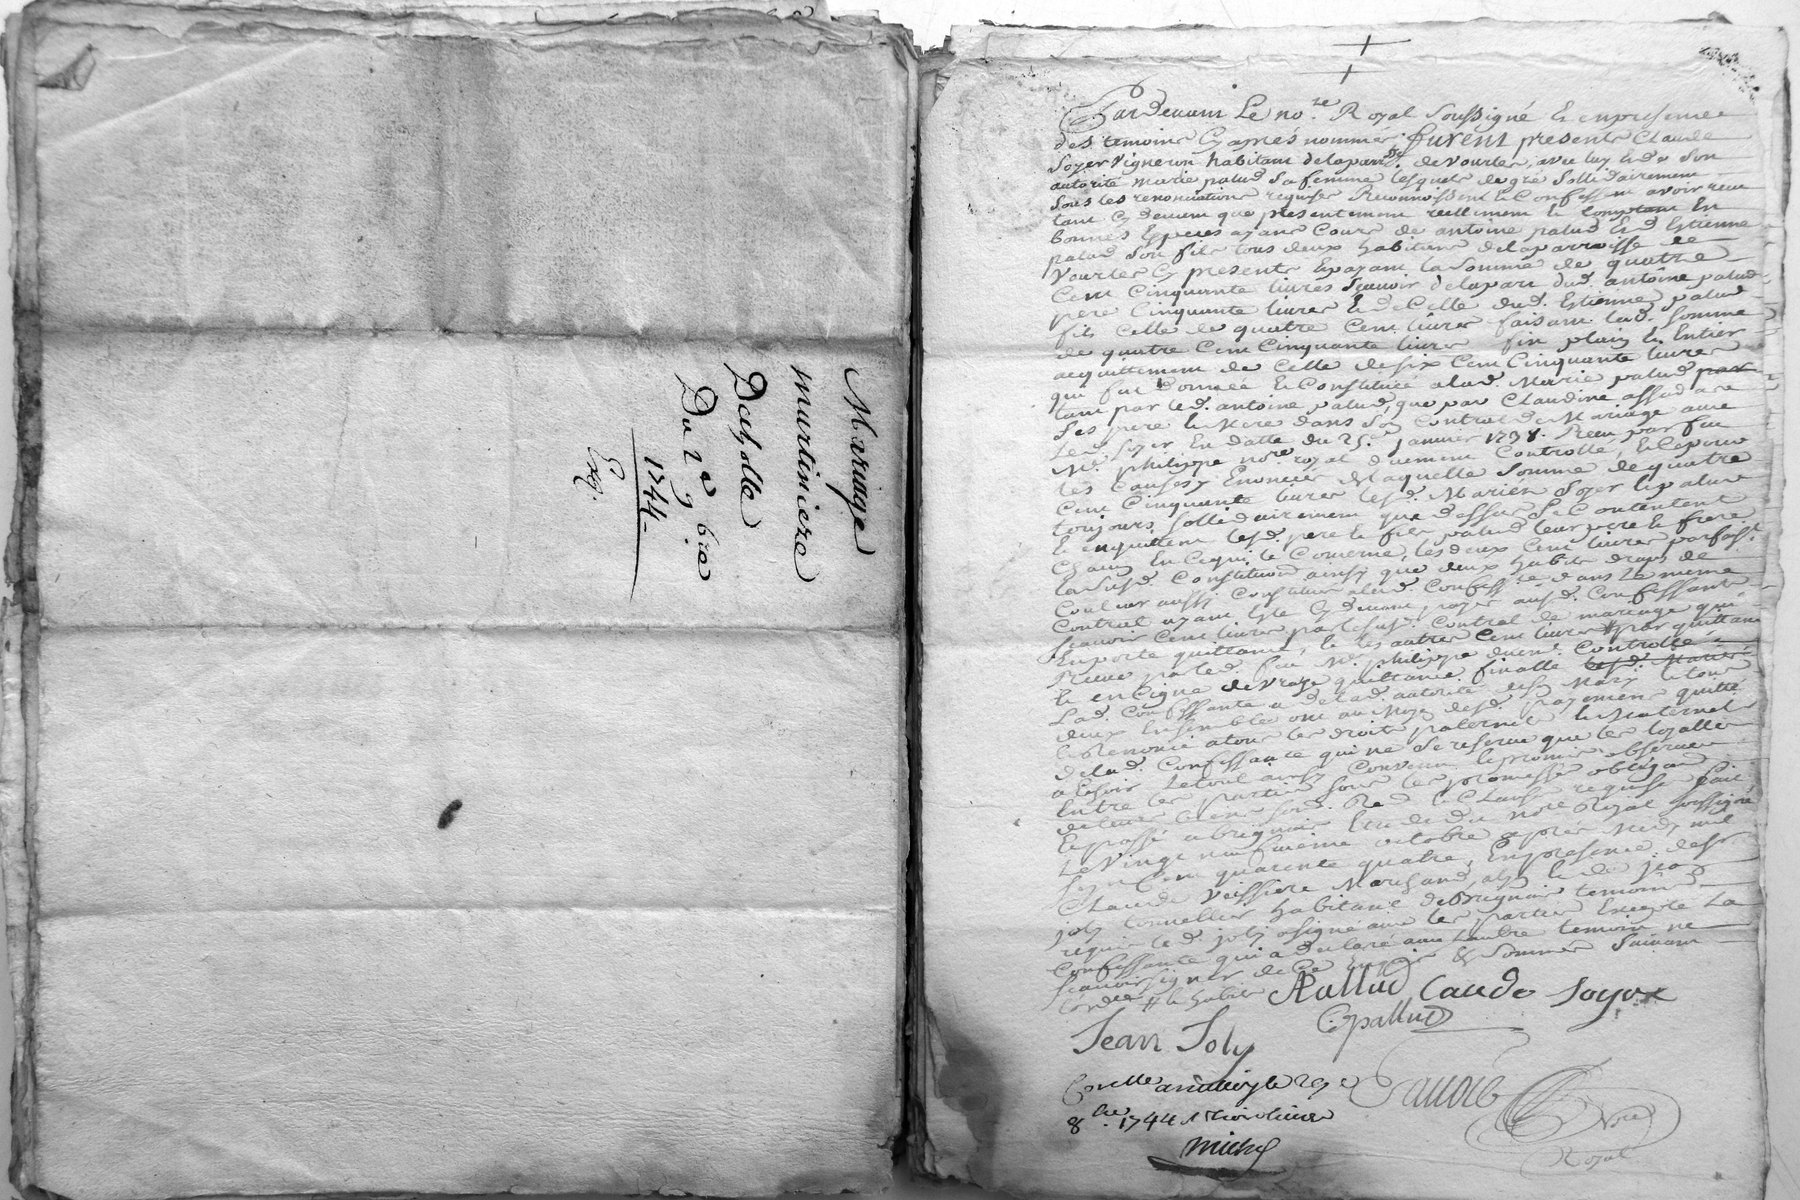 Mariage
martiniere
Decholle
Du 2e 9bre
1744
Exp.
Pardevant Le nore Royal Soussigné Et en presence
des temoins Cy apres nommés furent presents Claude
Soyer vigneron habitant delaparoisse de vourles, avec luy et de son
autorité marie palud sa femme lesquels de gré Sollidairement
sous les renonciations requises Reconnoissent et Confessent avoir receu
tant Cy devant que presentement reellement et comptant En
bonnes Especes ayant Cours de antoine palud Et d'Estienne
palud Son fils tous deux habitans delaparroisse de
vourles Cy presents Et payant la Somme de quatre
Cent Cinquante livres Scavoir delapart dud. antoine palud
pere Cinquante livres Et de Celle dud. Estienne palud
fils Celle de quatre Cent livres faisant lad. Somme
de quatre Cent Cinquante livres fin plain Et Entier
acquittement de Celle de six Cent Cinquante livres
qui fut donnée Et Constituée a lad. Marie palud par
tant par led. antoine palud, que par Claudine
Ses pere Et Mere dans Son Contrat de Mariage avec
Led. Soyer En datte du 25e janvier 1738. Receu par feu
Me philippe nore royal duement Controllé, Et Ce pour
les Causes y Enoncées de laquelle Somme de quatre
Cent Cinquante livres lesd. Mariés Soyer Et palud
toujours Sollidairement que dessus Se Contentent
Et enquittent lesd. pere Et fils palud leur pere Et frere
Chacun En Ce qui le Concerne, les deux Cent livres parfaist
la Susd. Constitution ainsy que deux habits draps de
Couleur aussy Constitués a lad. Confessante dans Le meme
Contrat ayant Esté Cy devant payés ausd. Confessants
Scavoir Cent livres par le susd. Contrat de mariage qui
En porte quittance, Et les autres Cent livres par quittance
Receue par led. feu Me philippe duemt Controllée
Et en Cigne de vraye quittance finalle lesd. Mariés
Lad. Confessante de lad. autorité de son Mary Et tou
deux Ensembles ont au Moyen desd. payemens quitté
Et Renoncé a tous les droits paternels Et Maternels
de lad. Confessante qui ne Se reserve que les loyalle
a Echoir Le tout ainsy Convenu Et promis observer
Entre les parties Sous les promesses obligaon
de leurs biens Soumd. Red. Et Clauses requises fait
Et passé a brignais Etude du Nore Royal soussigné
Le vingt neuvieme octobre apres Midy mil
Sept Cent quarente quatre, En presence de Sr
Claude veissiere Marchand, Et de jean
joly tonnellier habitants de Brignais temoins
requis led. joly a signé avec les parties Excepté La
Confessante qui a declaré avec L'autre temoin ne
Scavoir signer de Ce Enquis & Sommés Suivant
L'ordce
APallud Caude Soyer
Epallud
Jean Joly
8bre 1744
Nore
Royal